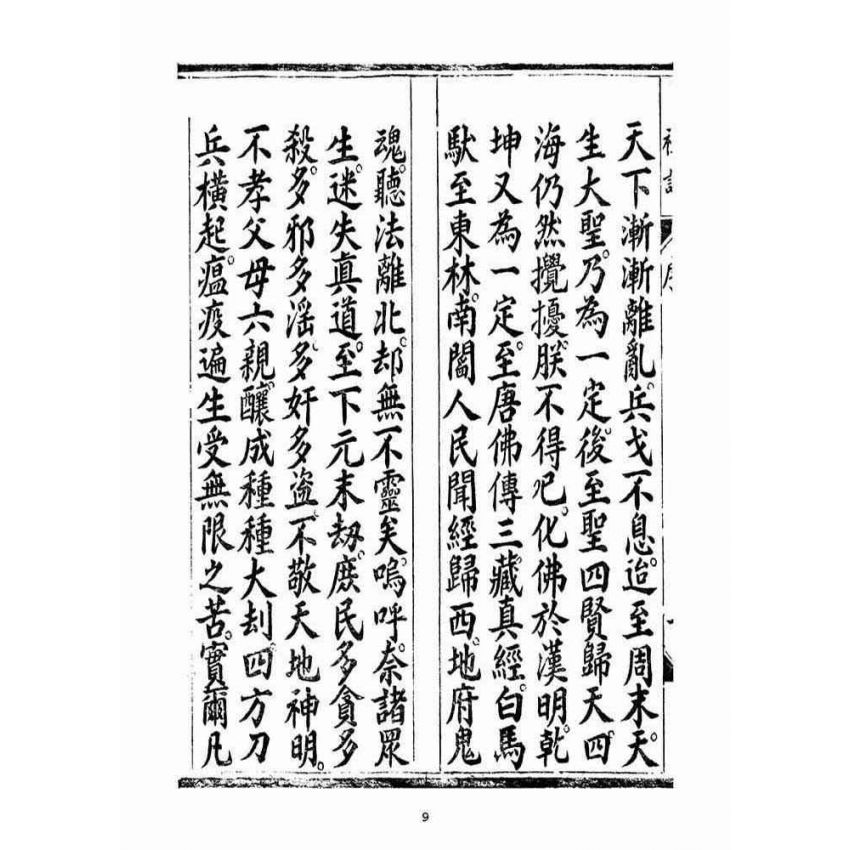 天下漸漸離亂兵戈不息。迨至周末。天
生大聖。乃為一定。後至聖四賢歸天。四
海仍然攪擾。朕不得已。化佛於漢明。乾
坤又為一定。至唐佛傳三藏真經。白馬
馱至東林。南閻人民聞經歸西。地府鬼
魂。聽法離北。却無不靈矣。嗚呼。奈諸眾
生。迷失真道。至下元末劫。庶民多貪多
殺。多邪多淫。多奸多盜。不敬天地神明。
不孝父母六親。釀成種種大刦。四方刀
兵橫起。瘟疫遍生。受無限之苦。實爾凡
9